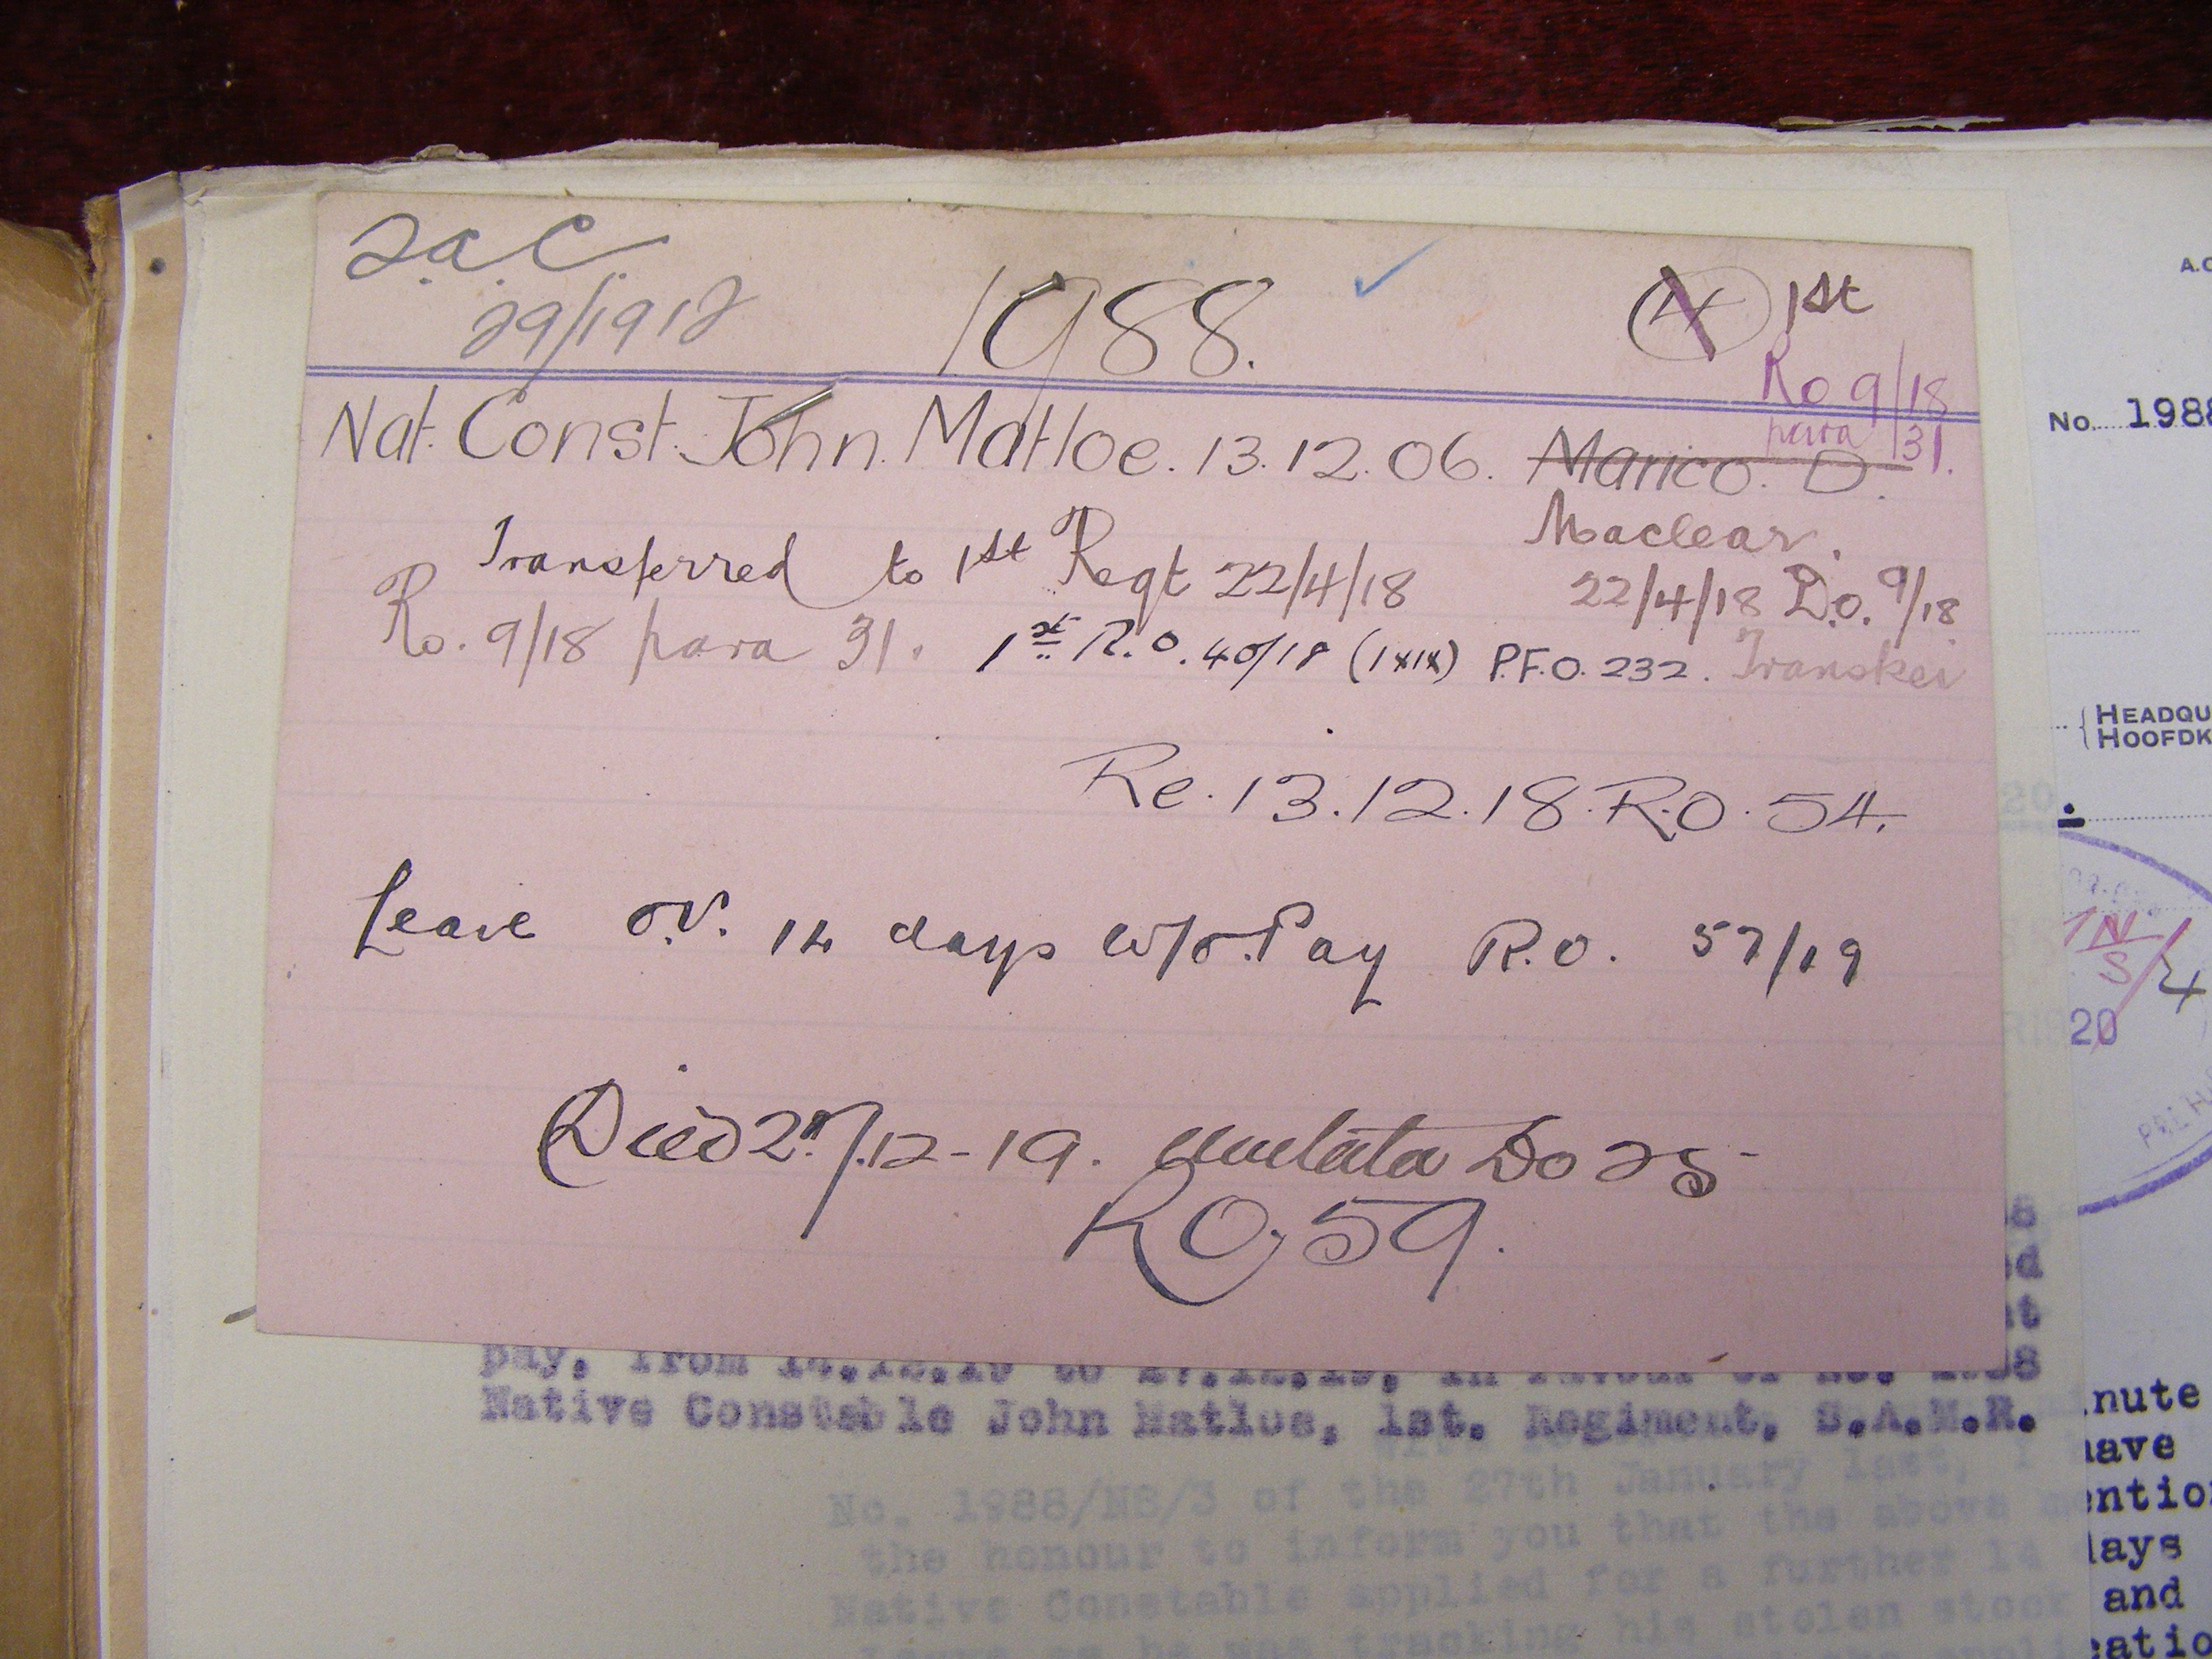 2.a.C.
29/1912
1988.
4 1st
Ro 9/18
para 31.
Nat. Const. John. Matloe. 13.12.06. Marico. D.
Maclear.
Transferred to 1st Regt 22/4/18
22/4/18 D.o. 9/18
Ro. 9/18 para 31. 1st R.O. 40/18 (1xix) P.F.O. 232. Transkei
Re. 13.12.18. R.O. 54.
Leave o.v. 14 days w/o. Pay R.O. 57/19
Died 27/12-19. Umtata Do 25
RO. 59.
pay, from 14.12.19 to 27.12.19, in favour of No. 1988
Native Constable John Matloe, 1st. Regiment, S.A.M.R.
No. 1988/NS/3 of the 27th January last, I
the honour to inform you that the above
Native Constable applied for a further 14
leave as he was tracking his stolen stock
A.C
No. 1988
HEADQU
HOOFDK
20
nute
have
ention
days
and
catio